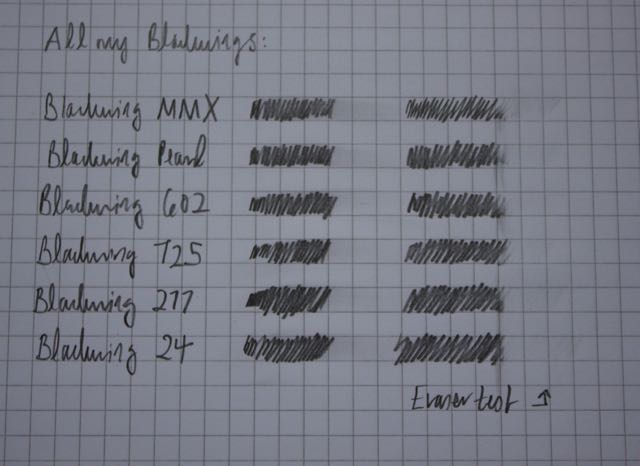 All my Blackwings:
Blackwing MMX
Blackwing Pearl
Blackwing 602
Blackwing 725
Blackwing 277
Blackwing 24
Eraser test ↑